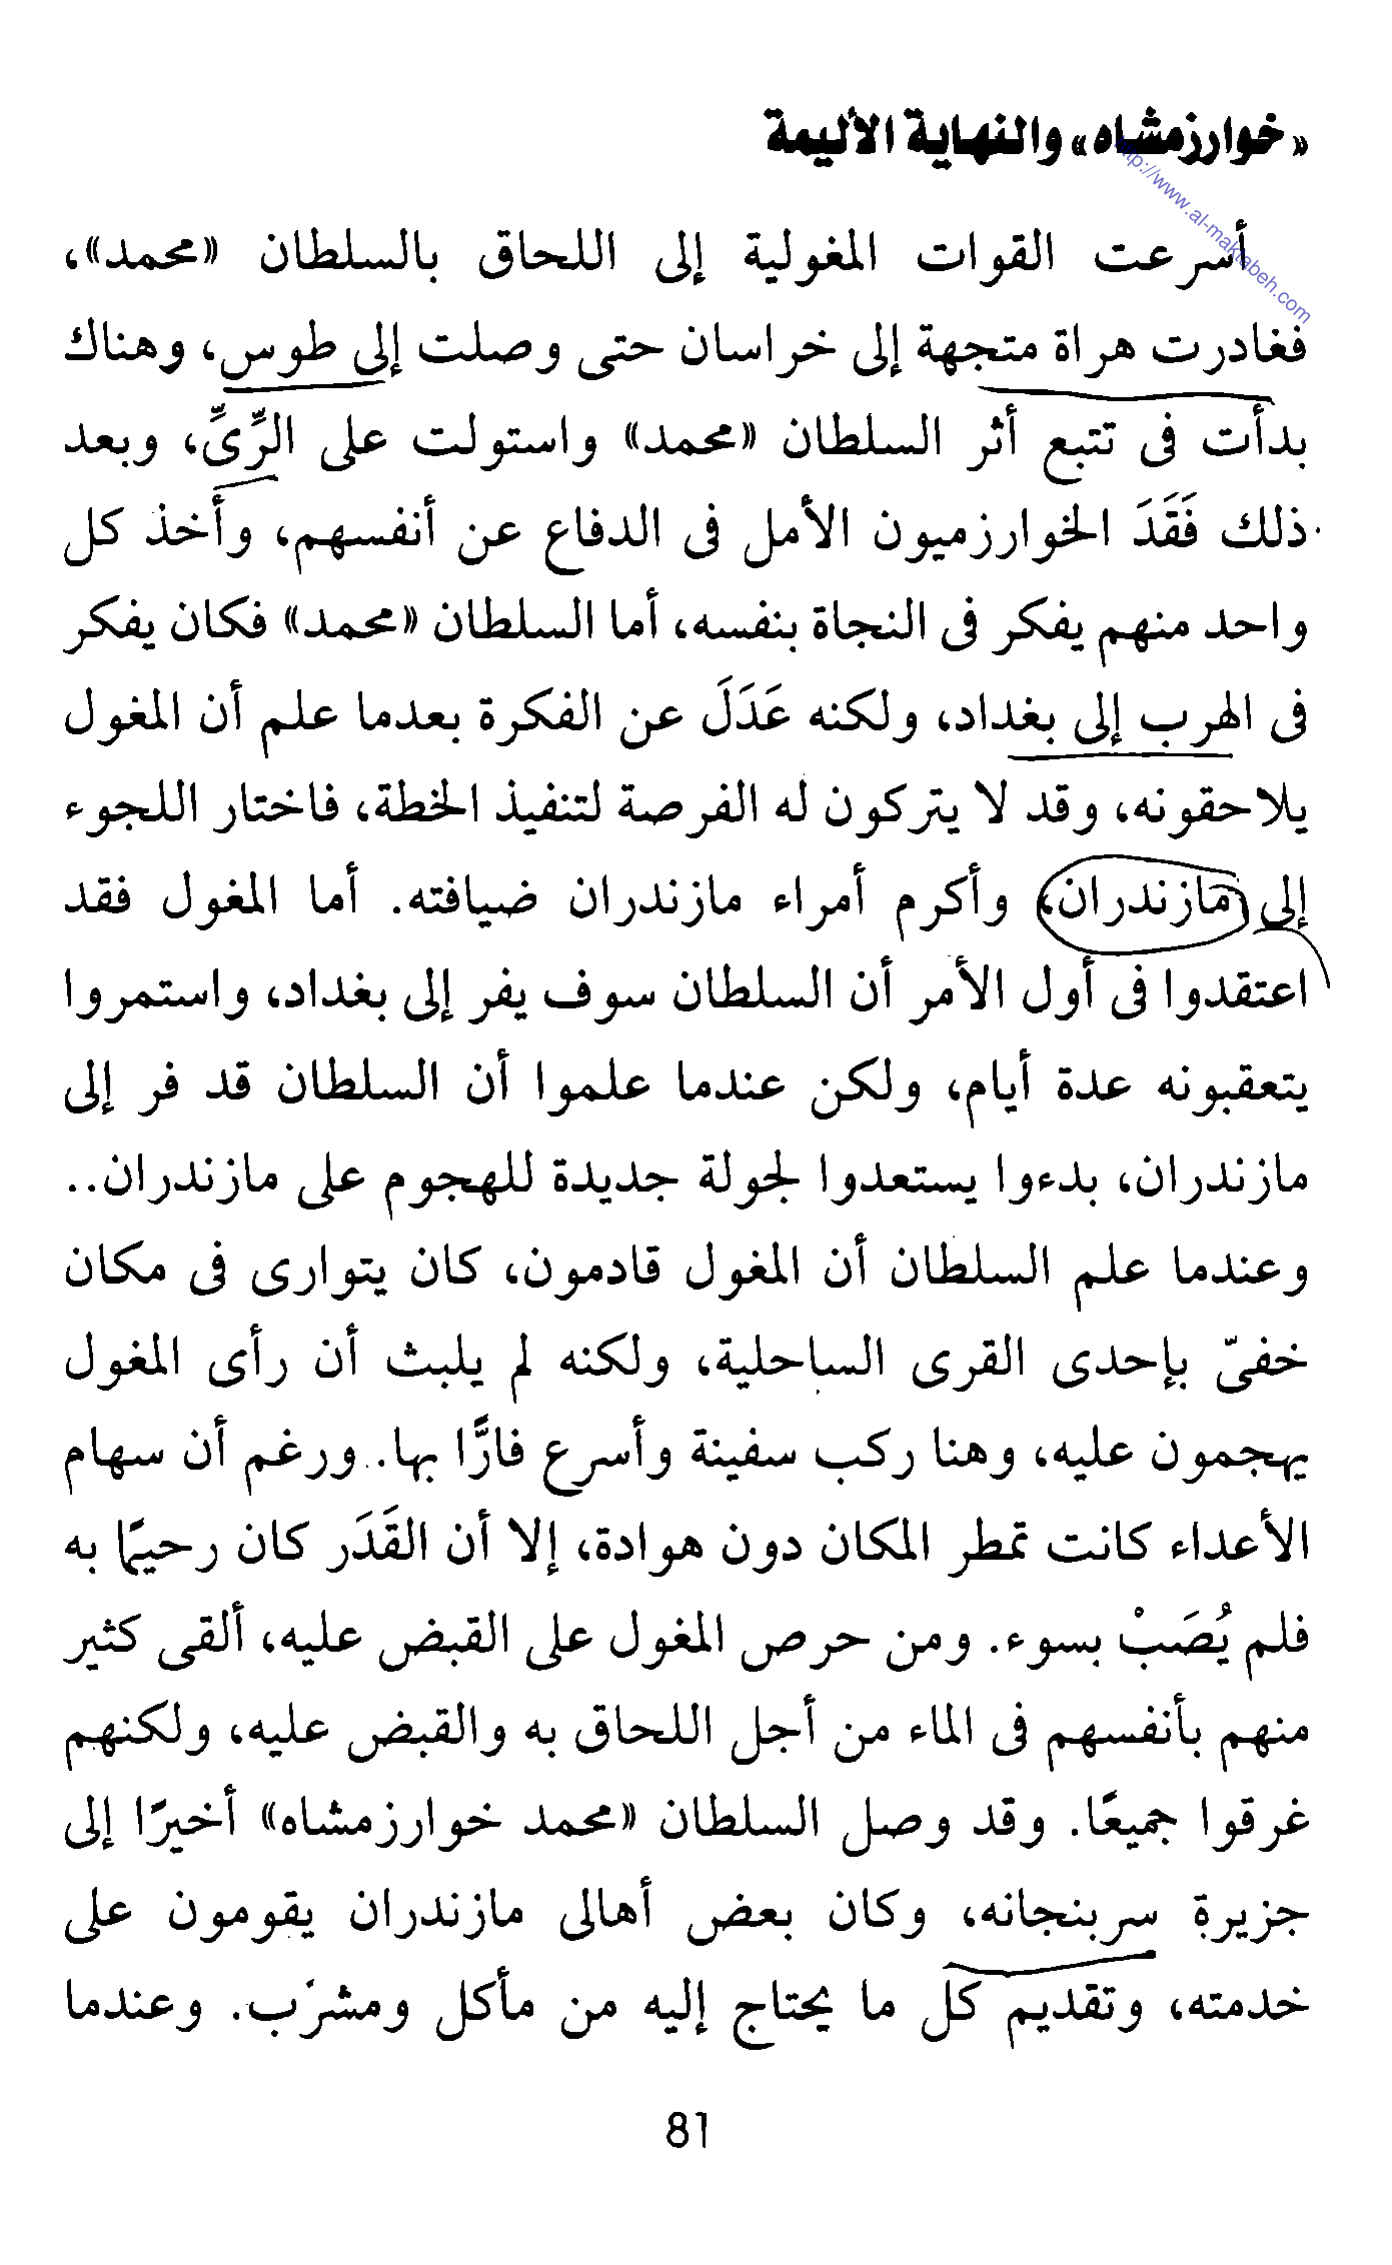 «خوارزمشاه» والنهاية الأليمة
http://www.al-maktabeh.com
أسرعت القوات المغولية إلى اللحاق بالسلطان «محمد»،
فغادرت هراة متجهة إلى خراسان حتى وصلت إلى طوس، وهناك
بدأت فى تتبع أثر السلطان «محمد» واستولت على الرِّىِّ، وبعد
ذلك فَقَدَ الخوارزميون الأمل فى الدفاع عن أنفسهم، وأخذ كل
واحد منهم يفكر فى النجاة بنفسه، أما السلطان «محمد» فكان يفكر
فى الهرب إلى بغداد، ولكنه عَدَلَ عن الفكرة بعدما علم أن المغول
يلاحقونه، وقد لا يتركون له الفرصة لتنفيذ الخطة، فاختار اللجوء
إلى مازندران، وأكرم أمراء مازندران ضيافته. أما المغول فقد
اعتقدوا فى أول الأمر أن السلطان سوف يفر إلى بغداد، واستمروا
يتعقبونه عدة أيام، ولكن عندما علموا أن السلطان قد فر إلى
مازندران، بدءوا يستعدوا لجولة جديدة للهجوم على مازندران..
وعندما علم السلطان أن المغول قادمون، كان يتوارى فى مكان
خفىّ بإحدى القرى الساحلية، ولكنه لم يلبث أن رأى المغول
يهجمون عليه، وهنا ركب سفينة وأسرع فارًّا بها.. ورغم أن سهام
الأعداء كانت تمطر المكان دون هوادة، إلا أن القَدَر كان رحيمًا به
فلم يُصَبْ بسوء. ومن حرص المغول على القبض عليه، ألقى كثير
منهم بأنفسهم فى الماء من أجل اللحاق به والقبض عليه، ولكنهم
غرقوا جميعًا. وقد وصل السلطان «محمد خوارزمشاه» أخيرًا إلى
جزيرة سربنجانه، وكان بعض أهالى مازندران يقومون على
خدمته، وتقديم كل ما يحتاج إليه من مأكل ومشرب. وعندما
81